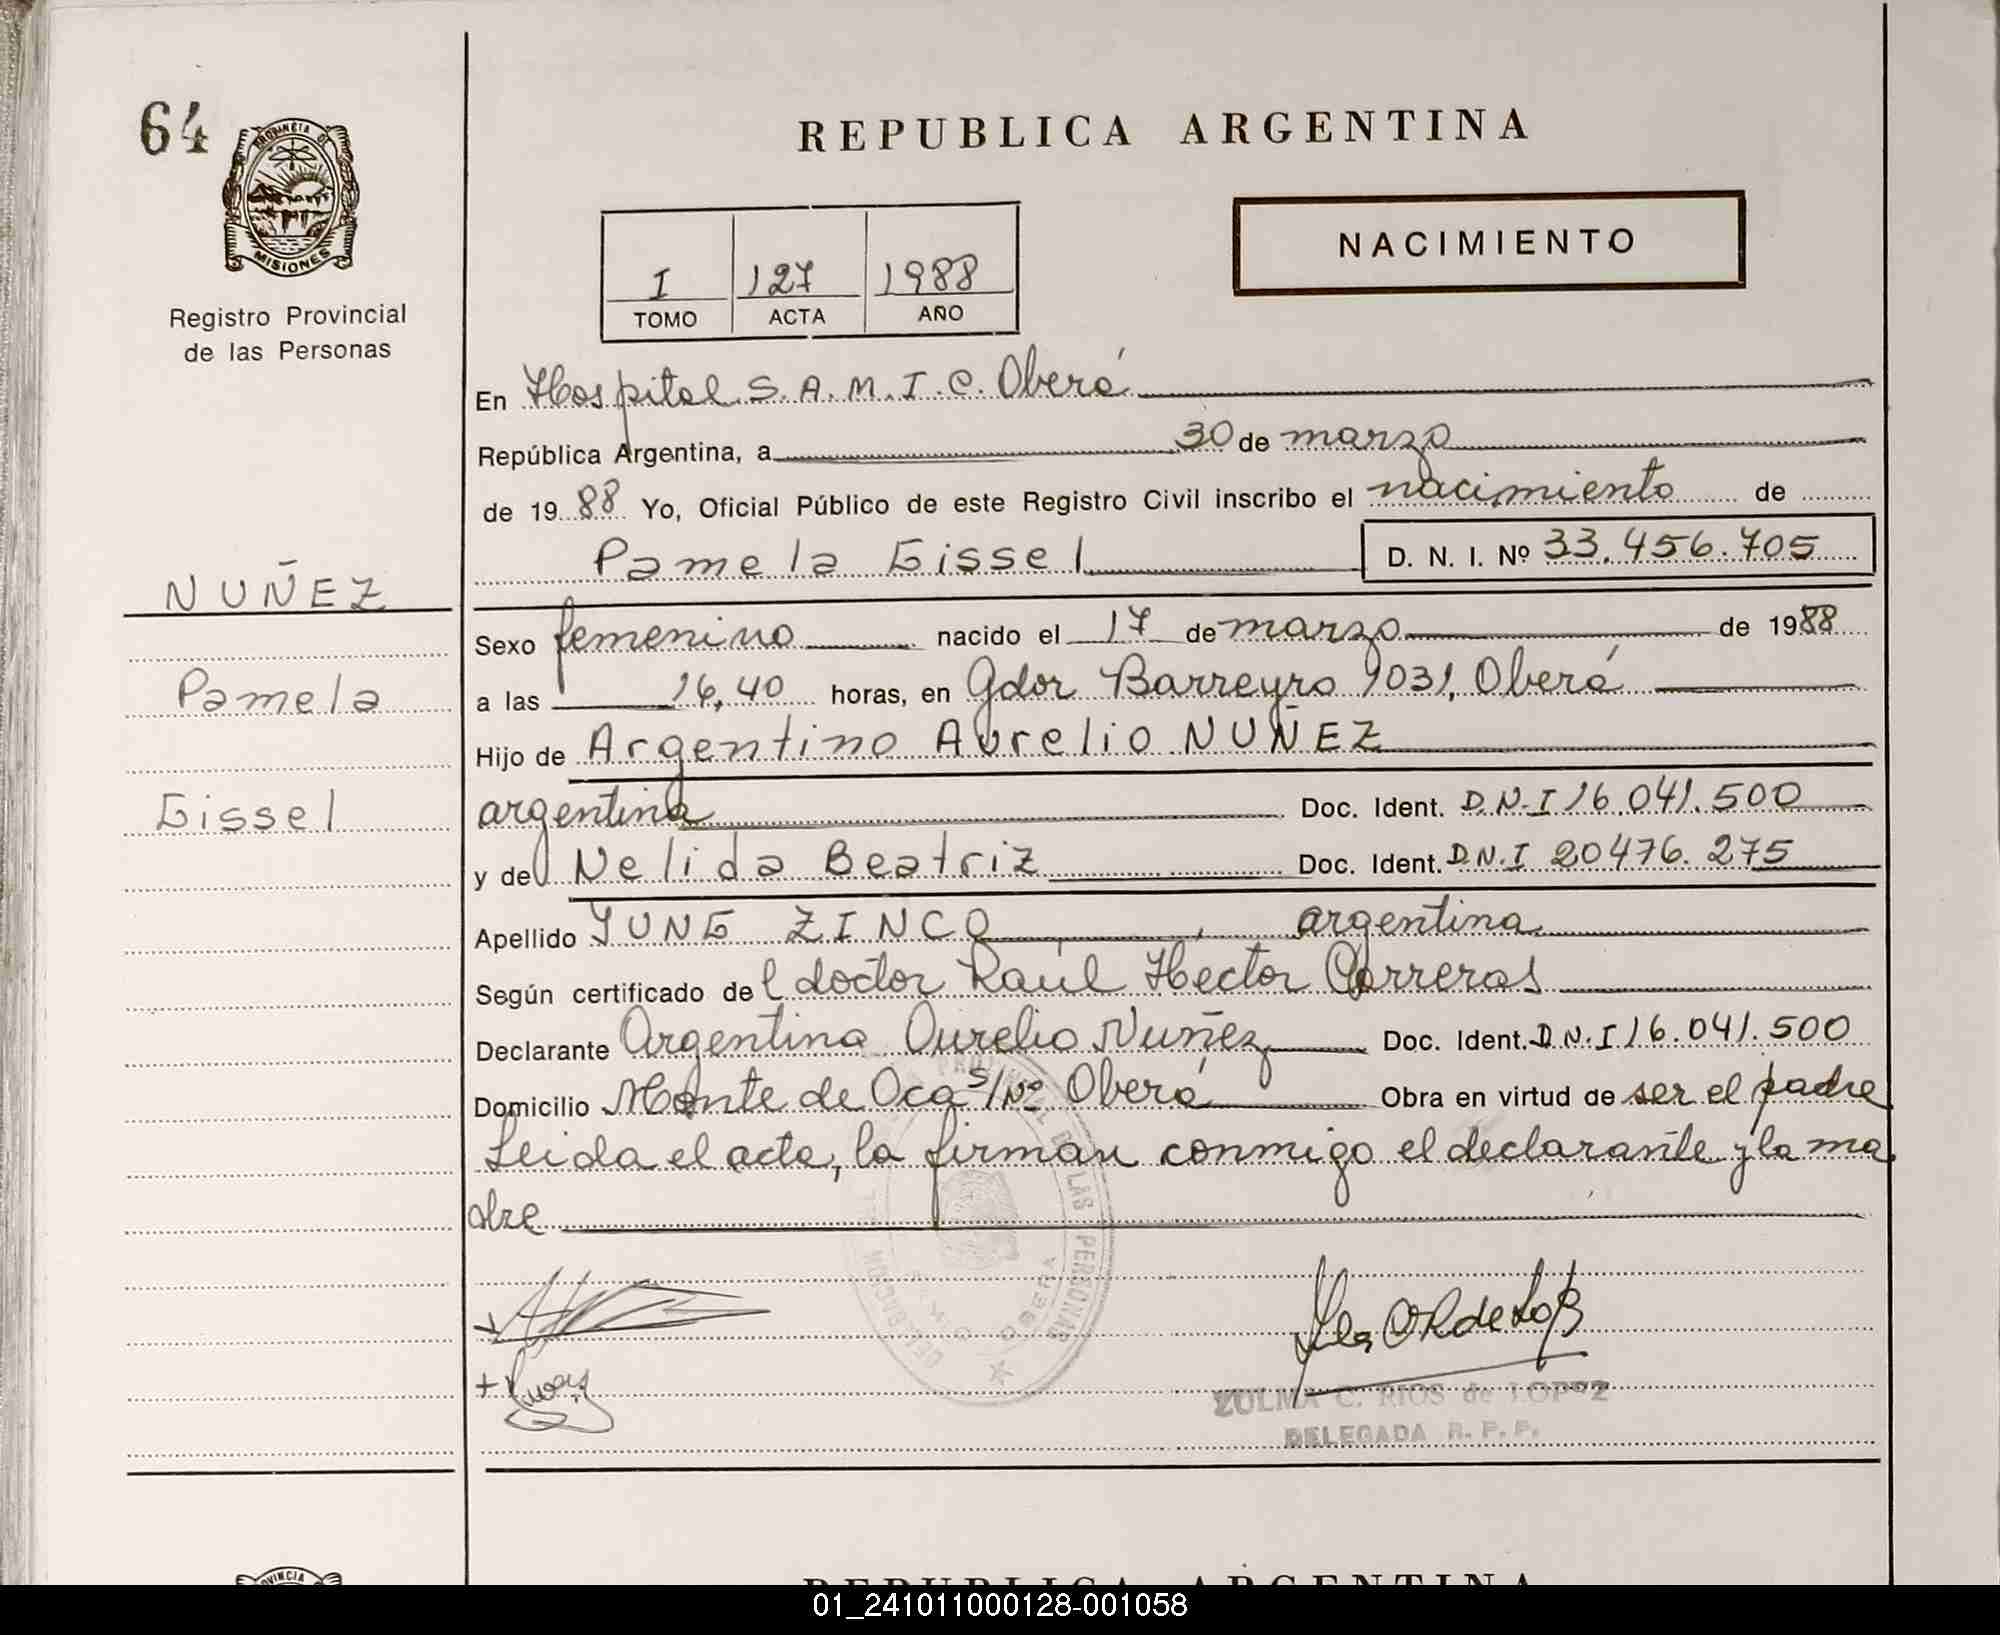 64
PROVINCIA DE
MISIONES
Registro Provincial
de las Personas
NUÑEZ
Pamela
Gissel
REPUBLICA ARGENTINA
I 127 1988
TOMO ACTA AÑO
NACIMIENTO
En Hospital S.A.M.I.C. Oberá
República Argentina, a 30 de marzo
de 1988 Yo, Oficial Público de este Registro Civil inscribo el nacimiento de
Pamela Gissel D. N. I. Nº 33.456.705
Sexo femenino nacido el 17 de marzo de 1988
a las 16,40 horas, en Gdor Barreyro 1031, Oberá
Hijo de Argentino Aurelio NUÑEZ
argentina Doc. Ident. D.N.I 16.041.500
y de Nelida Beatriz Doc. Ident. D.N.I 20476.275
Apellido JUNG ZINCO, argentina
Según certificado del doctor Raúl Héctor Carreras
Declarante Argentino Aurelio Nuñez Doc. Ident. D.N.I 16.041.500
Domicilio Monte de Oca S/Nº Oberá Obra en virtud de ser el padre
Leida el acta, la firman conmigo el declarante y la ma
dre
ZULMA C. RIOS de LOPEZ
DELEGADA R. P. P.
PROVINCIA
REPUBLICA ARGENTINA
01_241011000128-001058